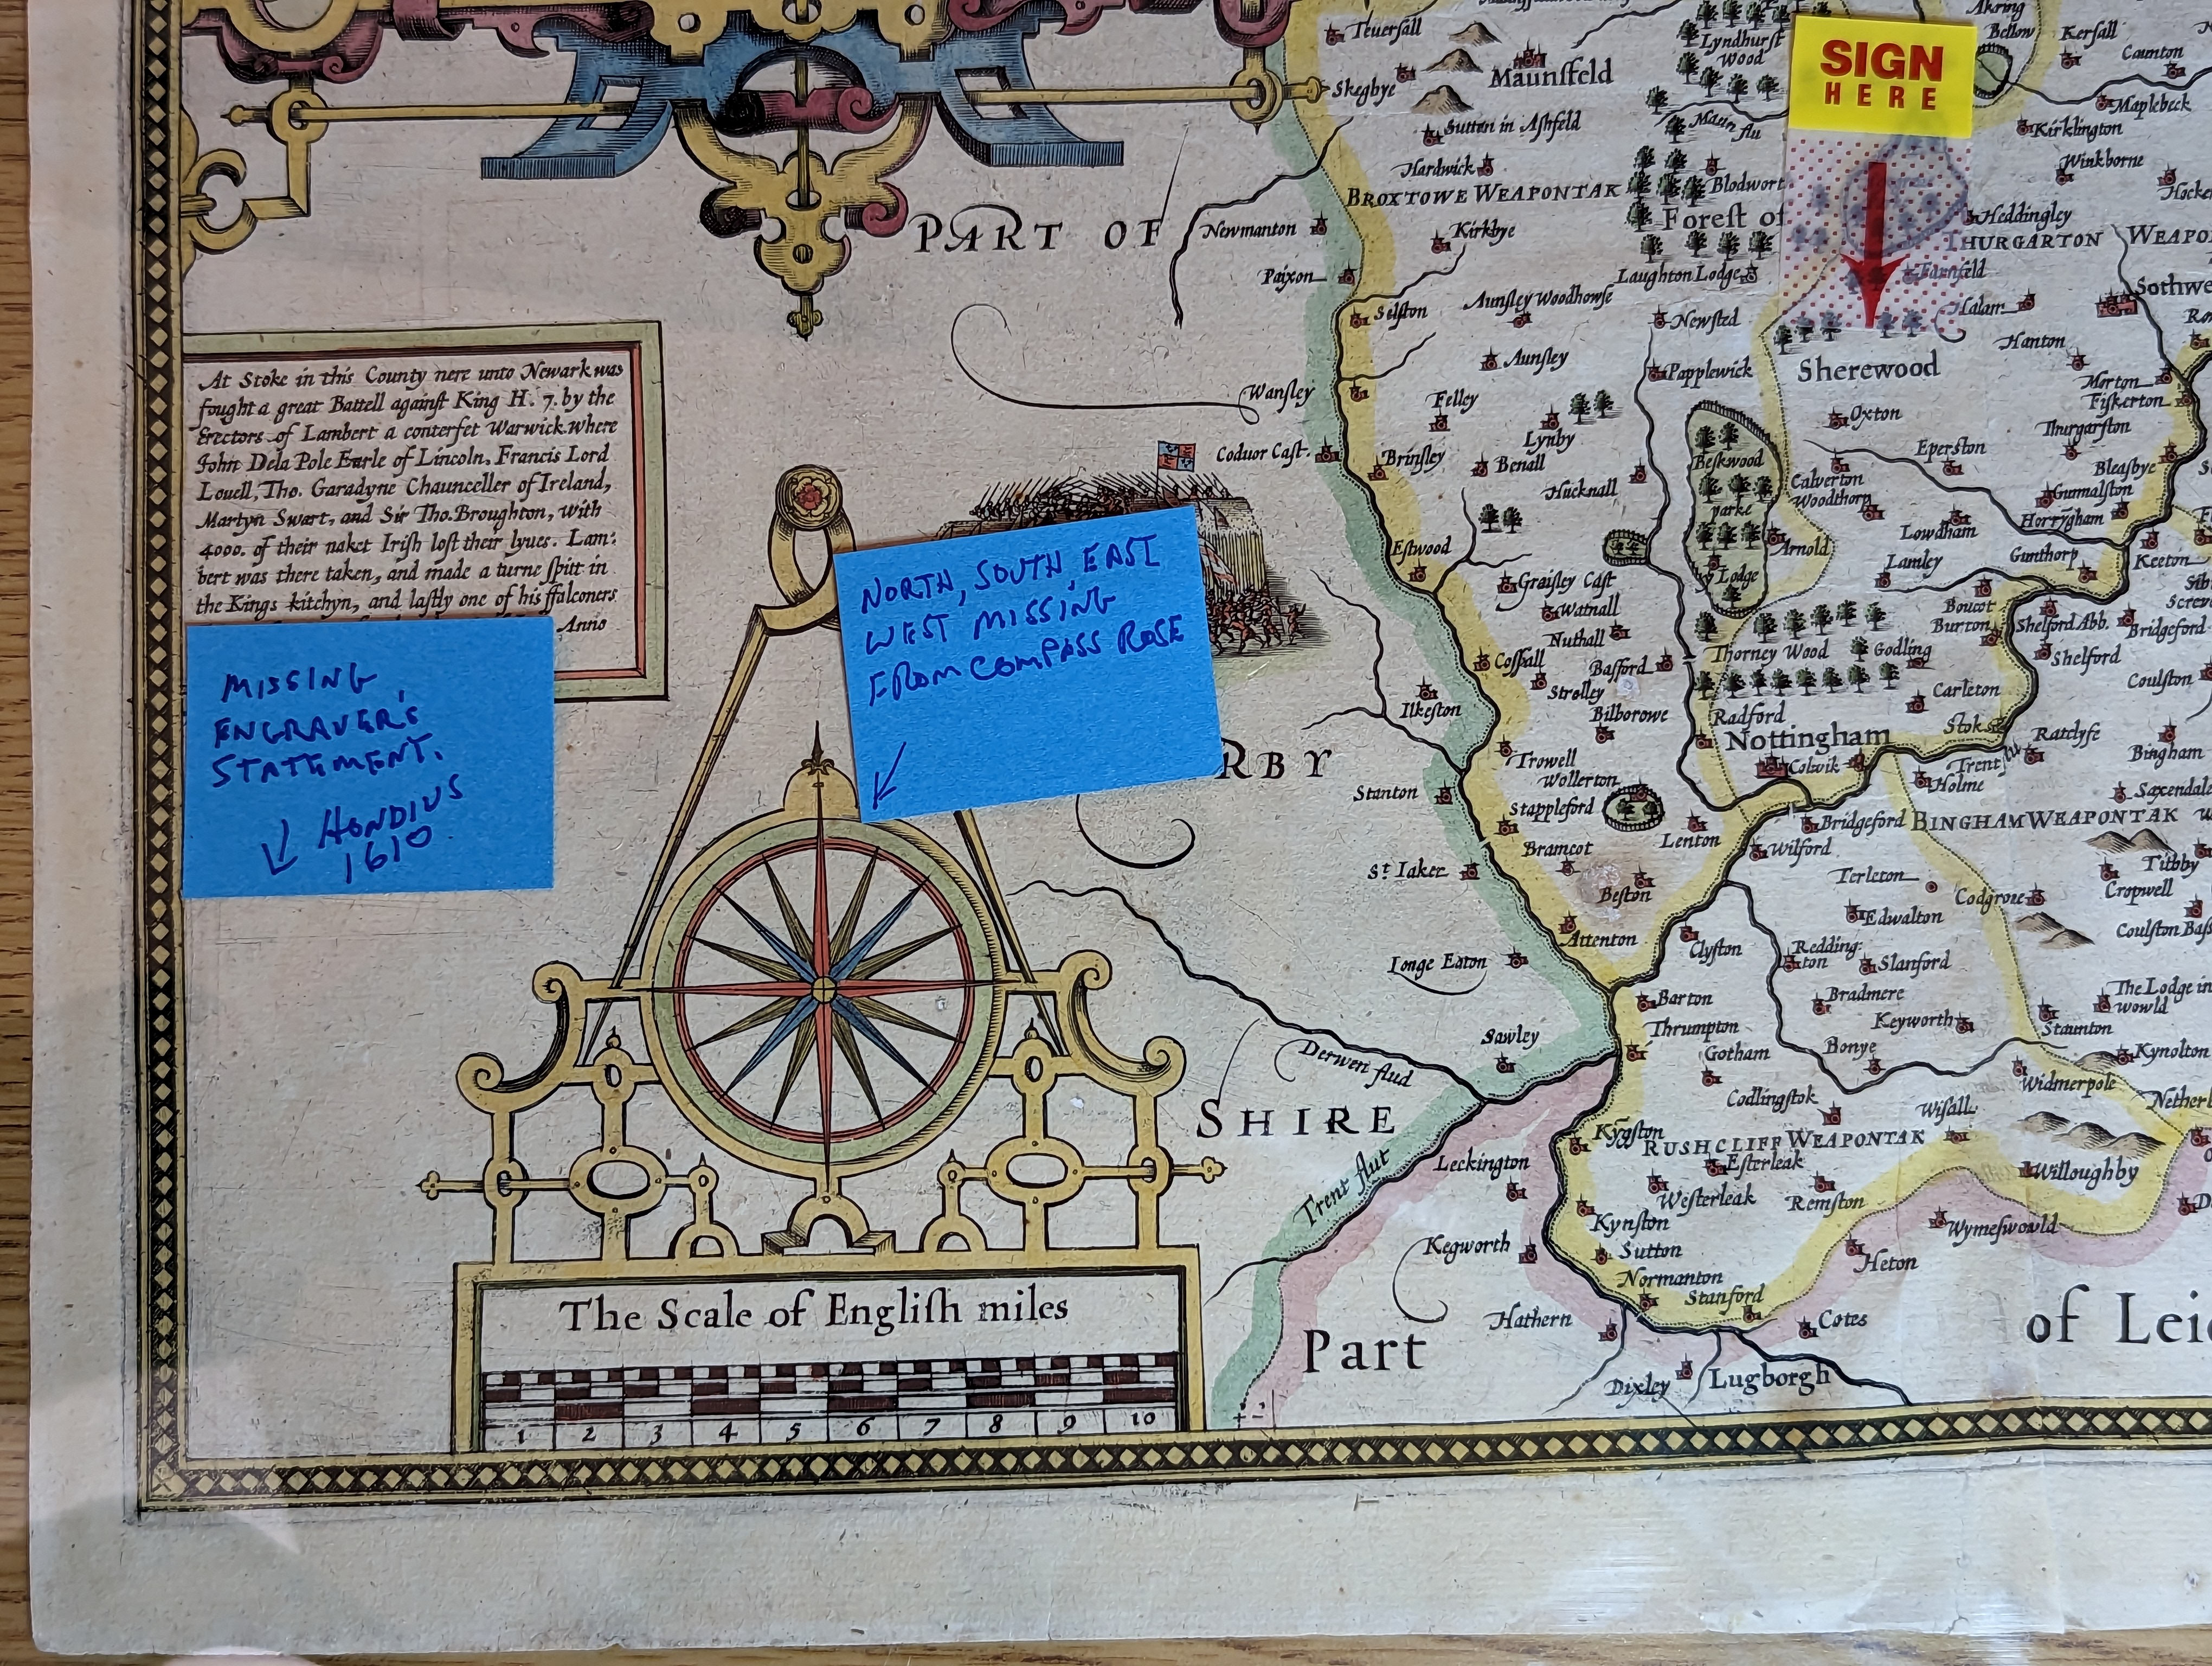 Teversall
Skegbye
Maunsfeld
Lyndhurst
Wood
SIGN
HERE
Akring
Bellow
Kersall
Caunton
Maplebeck
Kirklington
Winkborne
Sutton in Ashfeld
Maun flu
Hardwick
BROXTOWE WEAPONTAK
Blodwort
Forest of
Heddingley
THURGARTON WEAPO
PART OF
Newmanton
Kirkbye
Paixon
Laughton Lodge
Farnfeld
Halam
Sothwe
Selston
Aunsley Woodhowse
Newsted
Hanton
Aunsley
Papplewick
Sherewood
Morton
Fiskerton
Wansley
Felley
Lynby
Oxton
Thurgarston
Coduor Cast.
Brinsley
Benall
Hucknall
Beskwood
parke
Lodge
Calverton
Woodthorp
Eperston
Bleasbye
Gunnalston
Horrygham
Lowdham
Gunthorp
Lamley
Keeton
Estwood
Arnold
Graisley Cast
Watnall
Nuthall
Boucot
Burton
Shelford Abb.
Bridgeford
Shelford
Cossall
Strelley
Basford
Thorney Wood
Godling
Carleton
Coulston
Ilkeston
Bilborowe
Radford
Nottingham
Stoke
Ratclyfe
Bingham
At Stoke in this County nere unto Newark was
fought a great Battell against King H. 7. by the
Erectors of Lambert a conterfet Warwick. where
John Dela Pole Earle of Lincoln, Francis Lord
Louell, Tho. Garadyne Chaunceller of Ireland,
Martyn Swart, and Sir Tho. Broughton, with
4000. of their naket Irish lost their lyues. Lam:
bert was there taken, and made a turne spitt in
the Kings kitchyn, and lastly one of his ffalconers
Anno
MISSING
ENGRAVER'S
STATEMENT.
HONDIUS
1610
NORTH, SOUTH, EAST
WEST MISSING
FROM COMPASS ROSE
RBY
Trowell
Wollerton
Stappleford
Colwik
Trent flu
Holme
Saxendale
Stanton
Lenton
Bridgeford
BINGHAM WEAPONTAK
Wilford
Bramcot
Titbby
Cropwell
St Iaker
Beston
Terleton
Codgrove
Edwalton
Coulston Bass
Attenton
Clyston
Redding:
ton
Slanford
Longe Eaton
Barton
Bradmere
The Lodge in
wowld
Keyworth
Staunton
Thrumpton
Gotham
Bonye
Kynolton
Sawley
Derwen flud
Widmerpole
Codlingstok
Wisall
SHIRE
Kyngston
RUSHCLIFF WEAPONTAK
Leckington
Esterleak
Willoughby
Westerleak
Remston
Trent flut
Kynston
Wymeswould
Kegworth
Sutton
Heton
Normanton
Stanford
Hathern
Cotes
Part
of Lei
Dixley
Lugborgh
The Scale of English miles
1 2 3 4 5 6 7 8 9 10